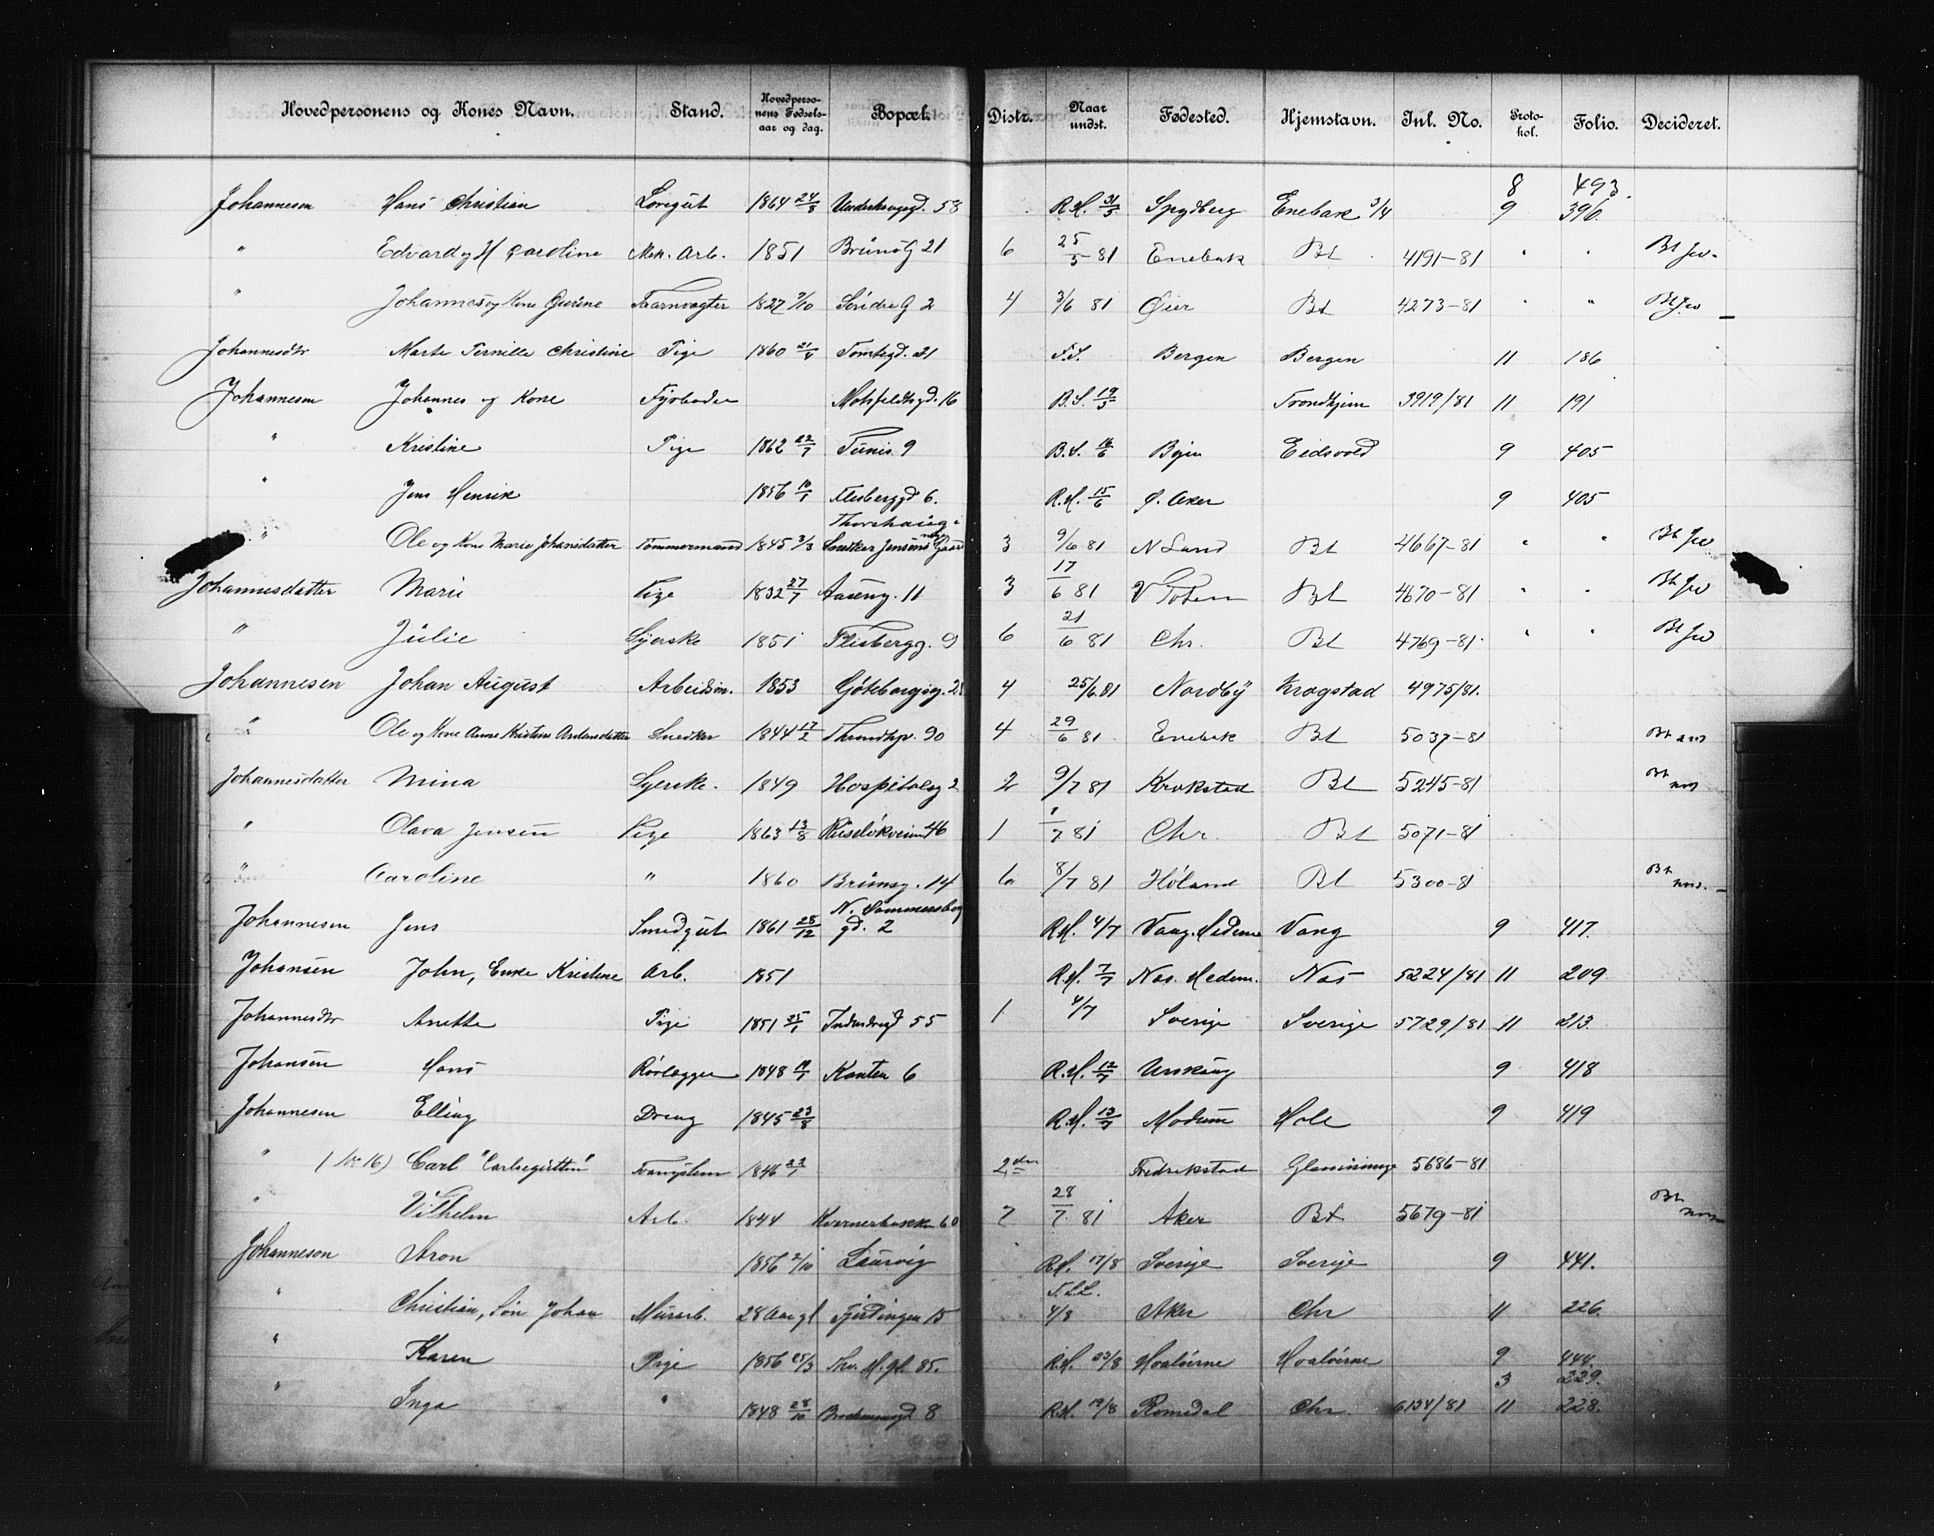 Hovedpersonens og Kones Navn. Stand. Hovedpersonens Fødselsaar og dag. Bopæl. Distr. Naar undst. Fødested. Hjemstavn. Inl. No. Protokol. Folio. Decideret.
8 493.
Johannesen Hans Christian Løregut 1864 24/8 58 R.H. 31/5 Spydberg Enebak 3/4 9 396.
" Edvard og H Caroline Mek. Arb. 1851 Brúnsg 21 6 25/5 81 Enebak Bt 4191-81 " " Bt Jw.
" Johannes og Kone Gurine Taarnvagter 1827 9/10 Søndre G 2 4 3/6 81 Øier Bt 4273-81 " " Bt Jw
Johannesdtr Marte Pernille Christine Pige 1860 21/4 Tomtegd. 21 F.S. Bergen Bergen 11 186
Johannesen Johannes og Kone Fyrbøder Motzfeldtsgd. 16 B.S. 19/5 Trondhjem 3919/81 11 191
" Kristine Pige 1862 22/7 Tunis 9 B.S. 16/6 Bjin Eidsvold 9 405
" Jens Henrik 1856 10/1 Flisberggd 6. R.H. 15/6 Ø. Aker 9 405
Thorshaug
" Ole og Kone Marie Johansdatter Tømmermand 1845 3/3 Snedker Jensens Gaard 3 9/6 81 N Land Bt 4667-81 " " Bt Jw
Johannesdatter Marie Pige 1832 27/7 Aaseng. 11 3 17/6 81 V Toten Bt 4670-81 " " Bt Jw
" Júlie Syerske 1851 Flisbergg. 9 6 21/6 81 Chr. Bt 4769-81 " " Bt Jw
Johannesen Johan August Arbeidsm. 1853 Gøteborgsg. 4 25/6.81 Nordby Krogstad 4975/81.
" Ole og Kone Anne Kristine Antonsdatter Snedker 1844 17/2 Thrundhjv. 90 4 29/6 81 Enebak Bt 5037-81 Bt
Johannesdatter Mina Syerske. 1849 Hospitalsg 2 2 9/7 81 Krokstad Bt 5245-81 Bt
" Olava Jensen Pige 1863 13/8 Ruseløkveien 46 1 1/7 81 Chr. Bt 5071-81
" Caroline " 1860 Brúnsg. 14 6 8/7 81 Høland Bt 5300-81 Bt
N. Sommersbog
Johannesen Jens Smedgut 1861 28/12 gd. 2 R.H. 4/7 Vang. Hedem Vang 9 417.
Johansen John, Enke Kristine Arb. 1851 R.H. 7/7 Nes. Hedem. Nes 5224/81 11 209
Johannesdtr Anette Pige 1851 25/1 Industrigd 55 1 4/7 Sverige Sverige 5729/81 11 213.
Johansen Hans Rørlægger 1848 19/1 Kanten 6 R.H. 12/7 Urskoug 9 418
Johannesen Elling Dreng 1845 23/8 R.H. 13/7 Modum Hole 9 419
" (No 16) Carl "Carlsegutten" Tvangslem 1846 23/1 2den Fredrikstad Glemminge 5686-81
" Vilhelm Arb. 1844 Kværnerbakken 60 7 28/7. 81 Aker Bt 5679-81 Bt
Johanneson Aron 1856 2/10 Laurvig R.H. 17/8 Sverige Sverige 9 441.
" Christian, Søn Johan Murarb. 28 Aar gl Fjerdingen 15 F.S.S. 4/8 Aker Chr 11 226.
" Karen Pige 1856 25/3 Thv. M. gl. 85. R.H. 23/8 Hvaløerne Hvaløerne 9 444.
3 229.
" Inga " 1848 28/10 8 R.H. 19/8 Romedal Chr. 6134/81 11 228.